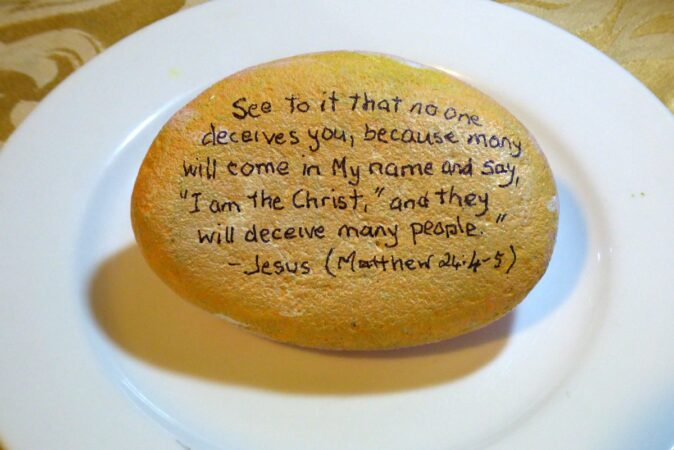 See to it that no one
deceives you, because many
will come in My name and say,
"I am the Christ," and they
will deceive many people."
- Jesus (Matthew 24:4-5)